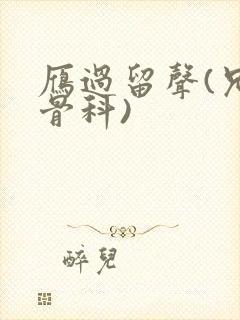 雁過留聲(兄
骨科)
醉兒